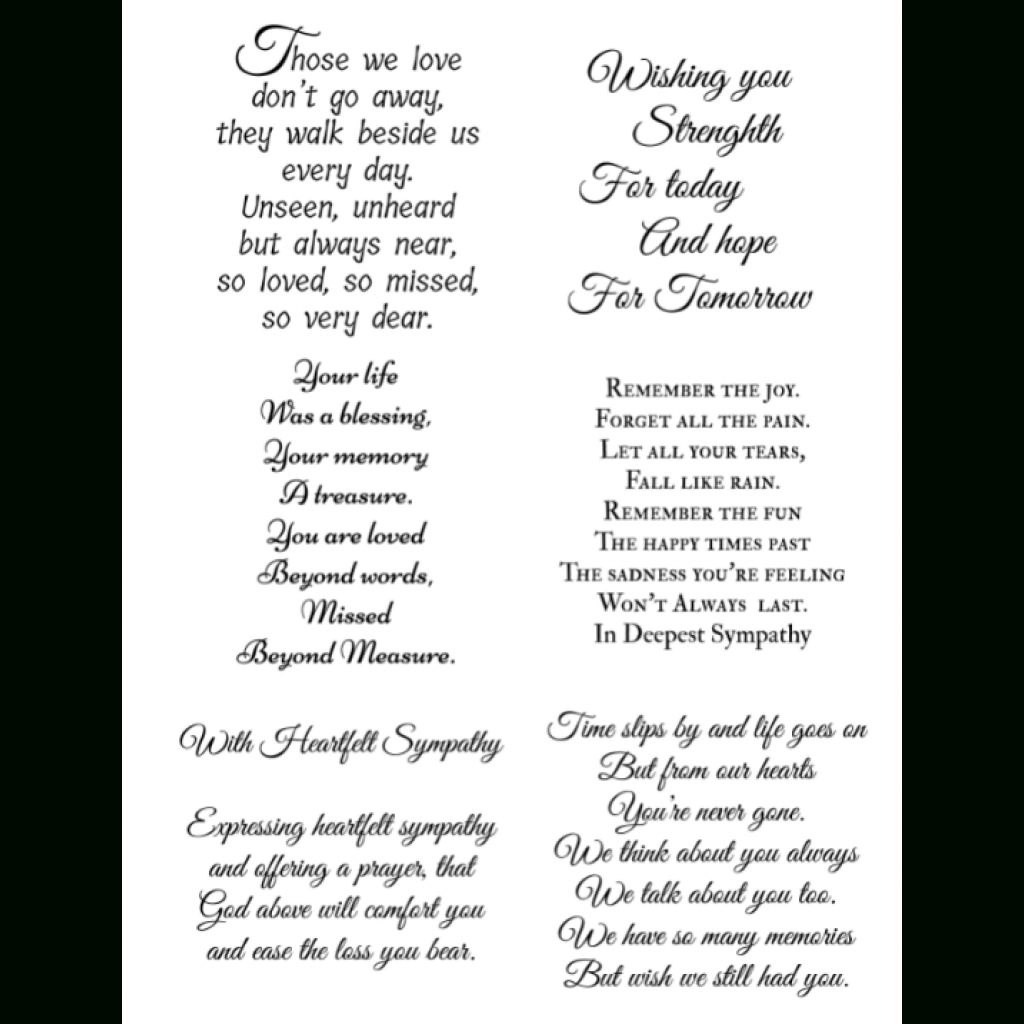 Those we love
don't go away,
they walk beside us
every day.
Unseen, unheard
but always near,
so loved, so missed,
so very dear.
Wishing you
Strenghth
For today
And hope
For Tomorrow
Your life
Was a blessing,
Your memory
A treasure.
You are loved
Beyond words,
Missed
Beyond Measure.
Remember the joy.
Forget all the pain.
Let all your tears,
Fall like rain.
Remember the fun
The happy times past
The sadness you're feeling
Won't Always last.
In Deepest Sympathy
With Heartfelt Sympathy
Expressing heartfelt sympathy
and offering a prayer, that
God above will comfort you
and ease the loss you bear.
Time slips by and life goes on
But from our hearts
You're never gone.
We think about you always
We talk about you too.
We have so many memories
But wish we still had you.